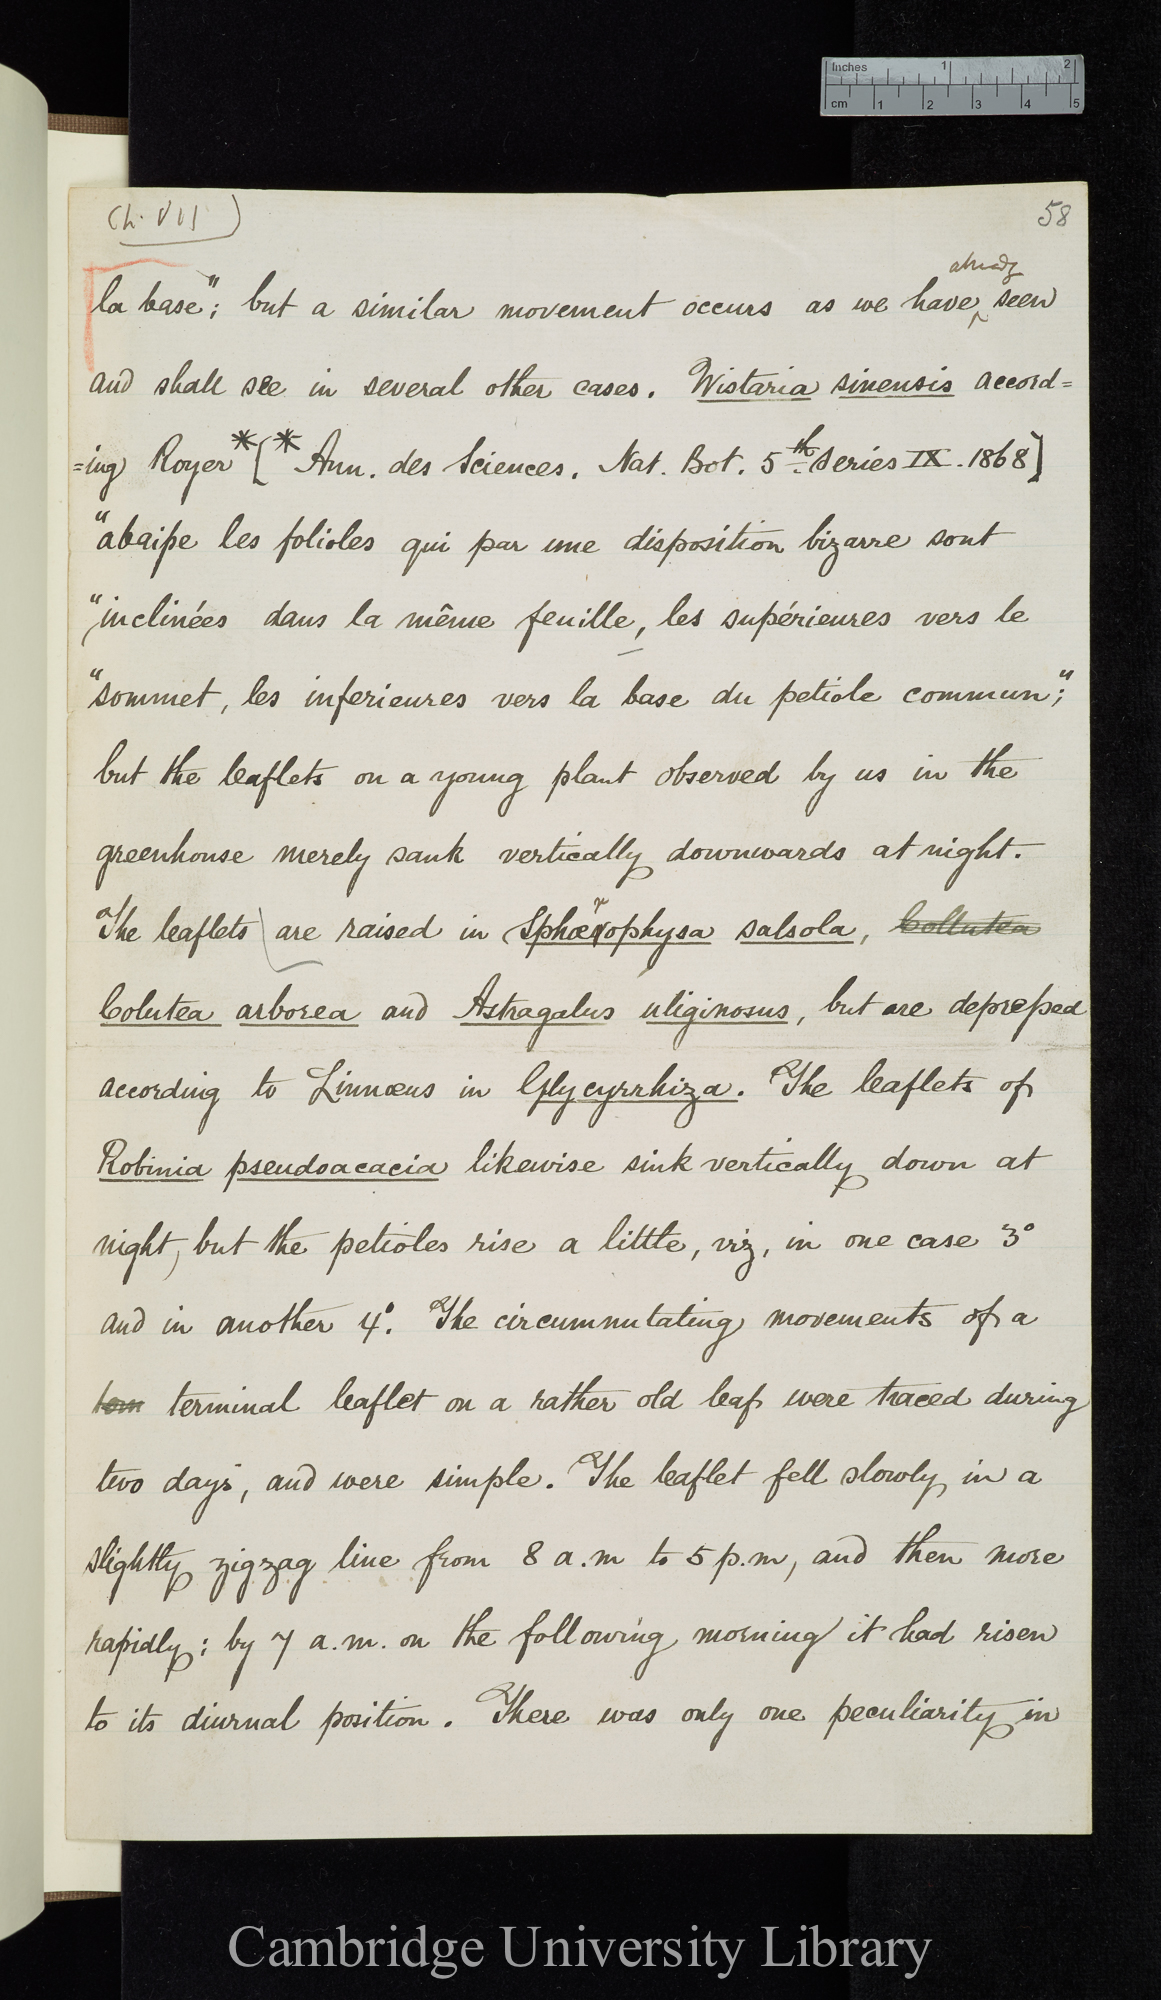 Inches 1 2
cm 1 2 3 4 5
Ch. VII)
58
already
la base"; but a similar movement occurs as we have seen
and shall see in several other cases. Wistaria sinensis accord=
=ing Royer*[* Ann. des Sciences. Nat. Bot. 5th Series IX. 1868]
"abaisse les folioles qui par une disposition bizarre sont
"inclinées dans la même feuille, les supérieures vers le
"sommet, les inferieures vers la base du petiole commun;"
but the leaflets on a young plant observed by us in the
greenhouse merely sank vertically downwards at night.
The leaflets are raised in Sphærophysa salsola, Collutea
Colutea arborea and Astragalus uliginosus, but are depressed
according to Linnæus in Glycyrrhiza. The leaflets of
Robinia pseudoacacia likewise sink vertically down at
night, but the petioles rise a little, viz, in one case 3°
and in another 4°. The circumnutating movements of a
terminal leaflet on a rather old leaf were traced during
two days, and were simple. The leaflet fell slowly in a
slightly zigzag line from 8 a.m to 5 p.m, and then more
rapidly; by 7 a.m. on the following morning it had risen
to its diurnal position. There was only one peculiarity in
Cambridge University Library